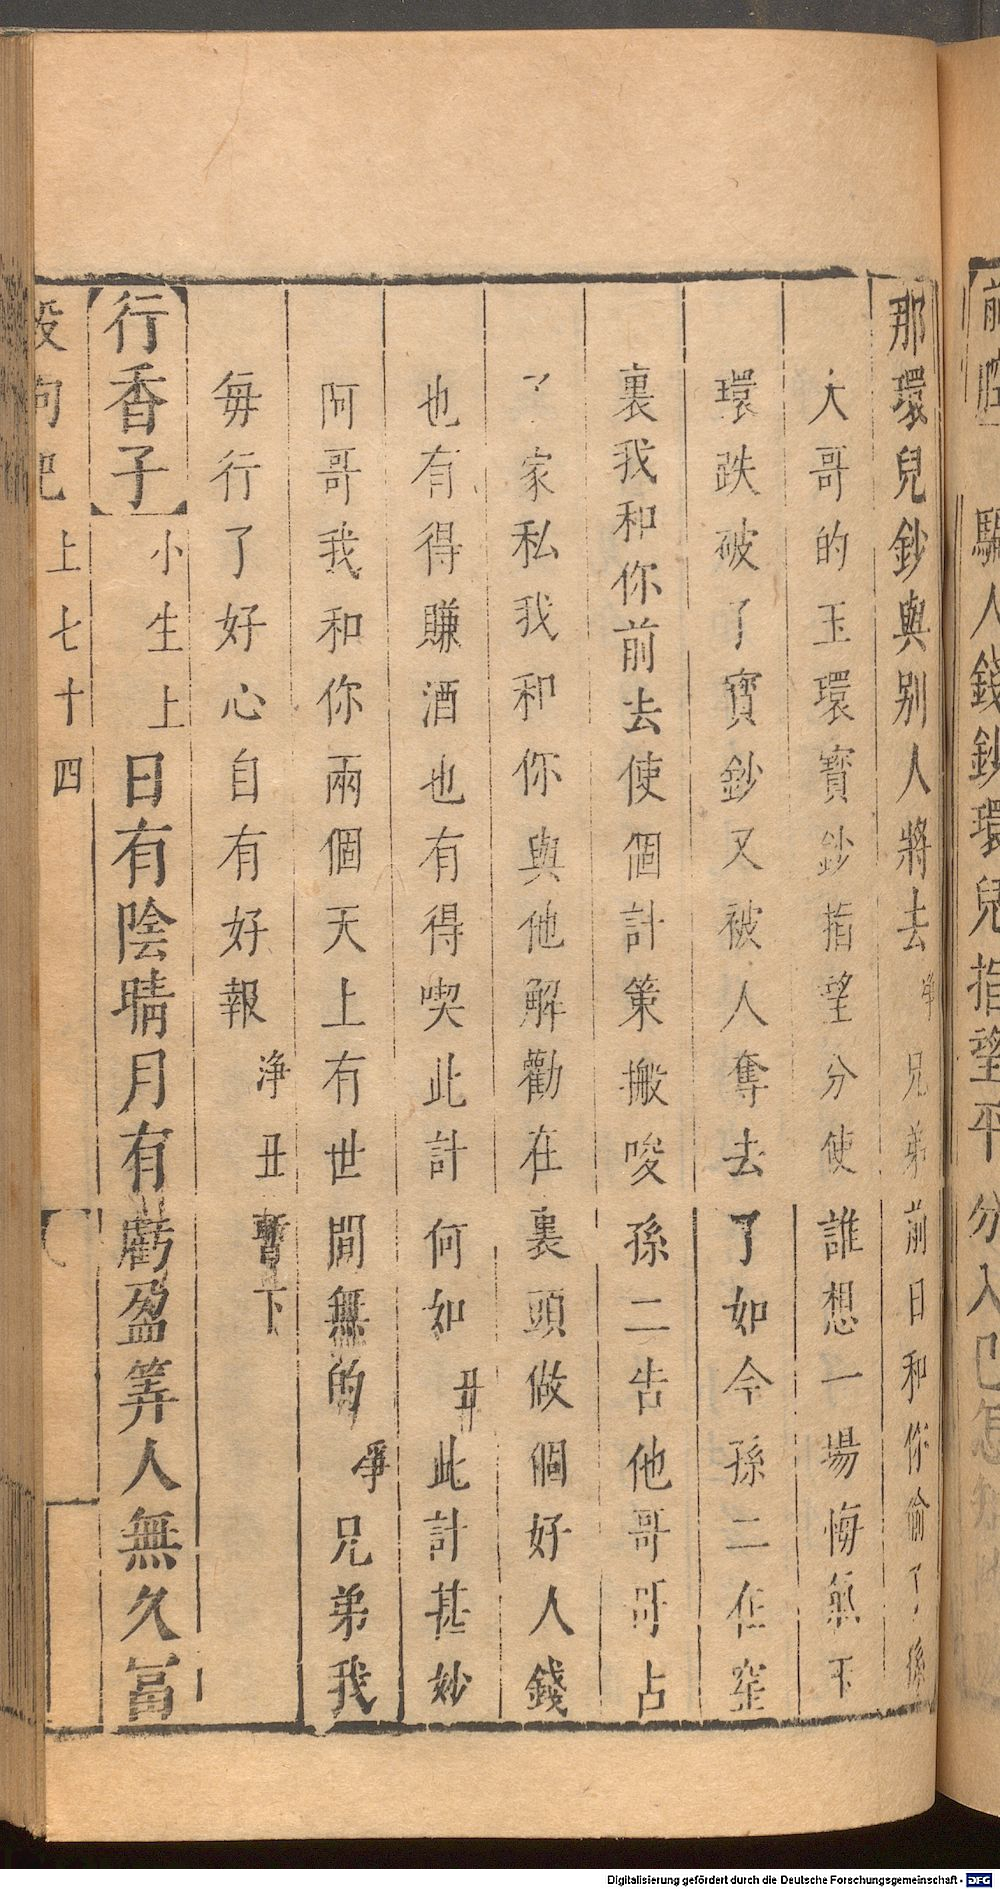 騙人錢鈔環兒指望平分入己怎
那環兒鈔與别人將去 净 兄弟前日和你偷了孫
大哥的玉環寳鈔指望分使誰想一場悔氣玉
環跌破了寳鈔又被人奪去了如今孫二在窑
裏我和你前去使個計策搬唆孫二告他哥哥占
了家私我和你與他解勸在裏頭做個好人錢
也有得賺酒也有得喫此計何如 丑 此計甚妙
阿哥我和你兩個天上有世間無的 净 兄弟我
每行了好心自有好報 净丑暫下
【行香子】小生上 日有陰晴月有虧盈筭人無久冨
殺狗巴上七十四
Digitalisierung gefördert durch die Deutsche Forschungsgemeinschaft - DFG